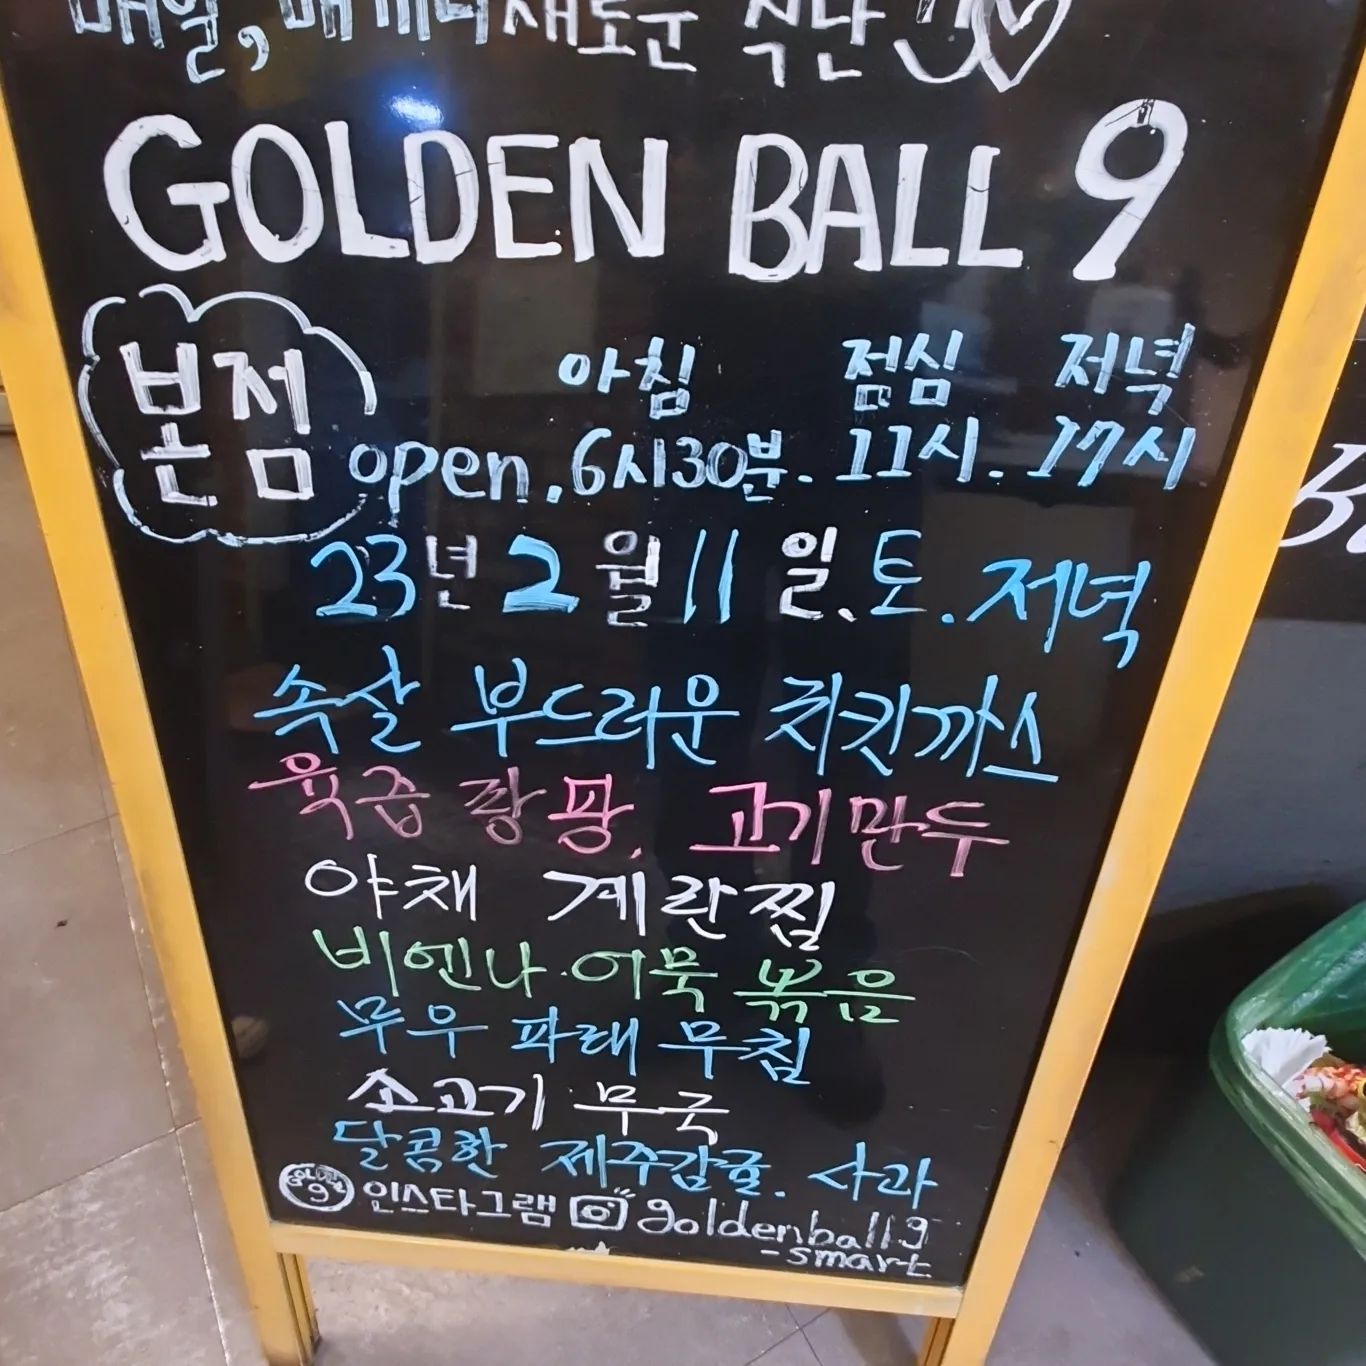 매일, 매끼니 새로운 식단
GOLDEN BALL 9
본점
아침 점심 저녁
open. 6시30분. 11시. 17시
23년 2월 11일. 토. 저녁
속살 부드러운 치킨까스
육즙 팡팡. 고기만두
야채 계란찜
비엔나 어묵 볶음
무우 파래 무침
소고기 무국
달콤한 제주감귤. 사과
GOLDEN 9 인스타그램 goldenball9
-smart